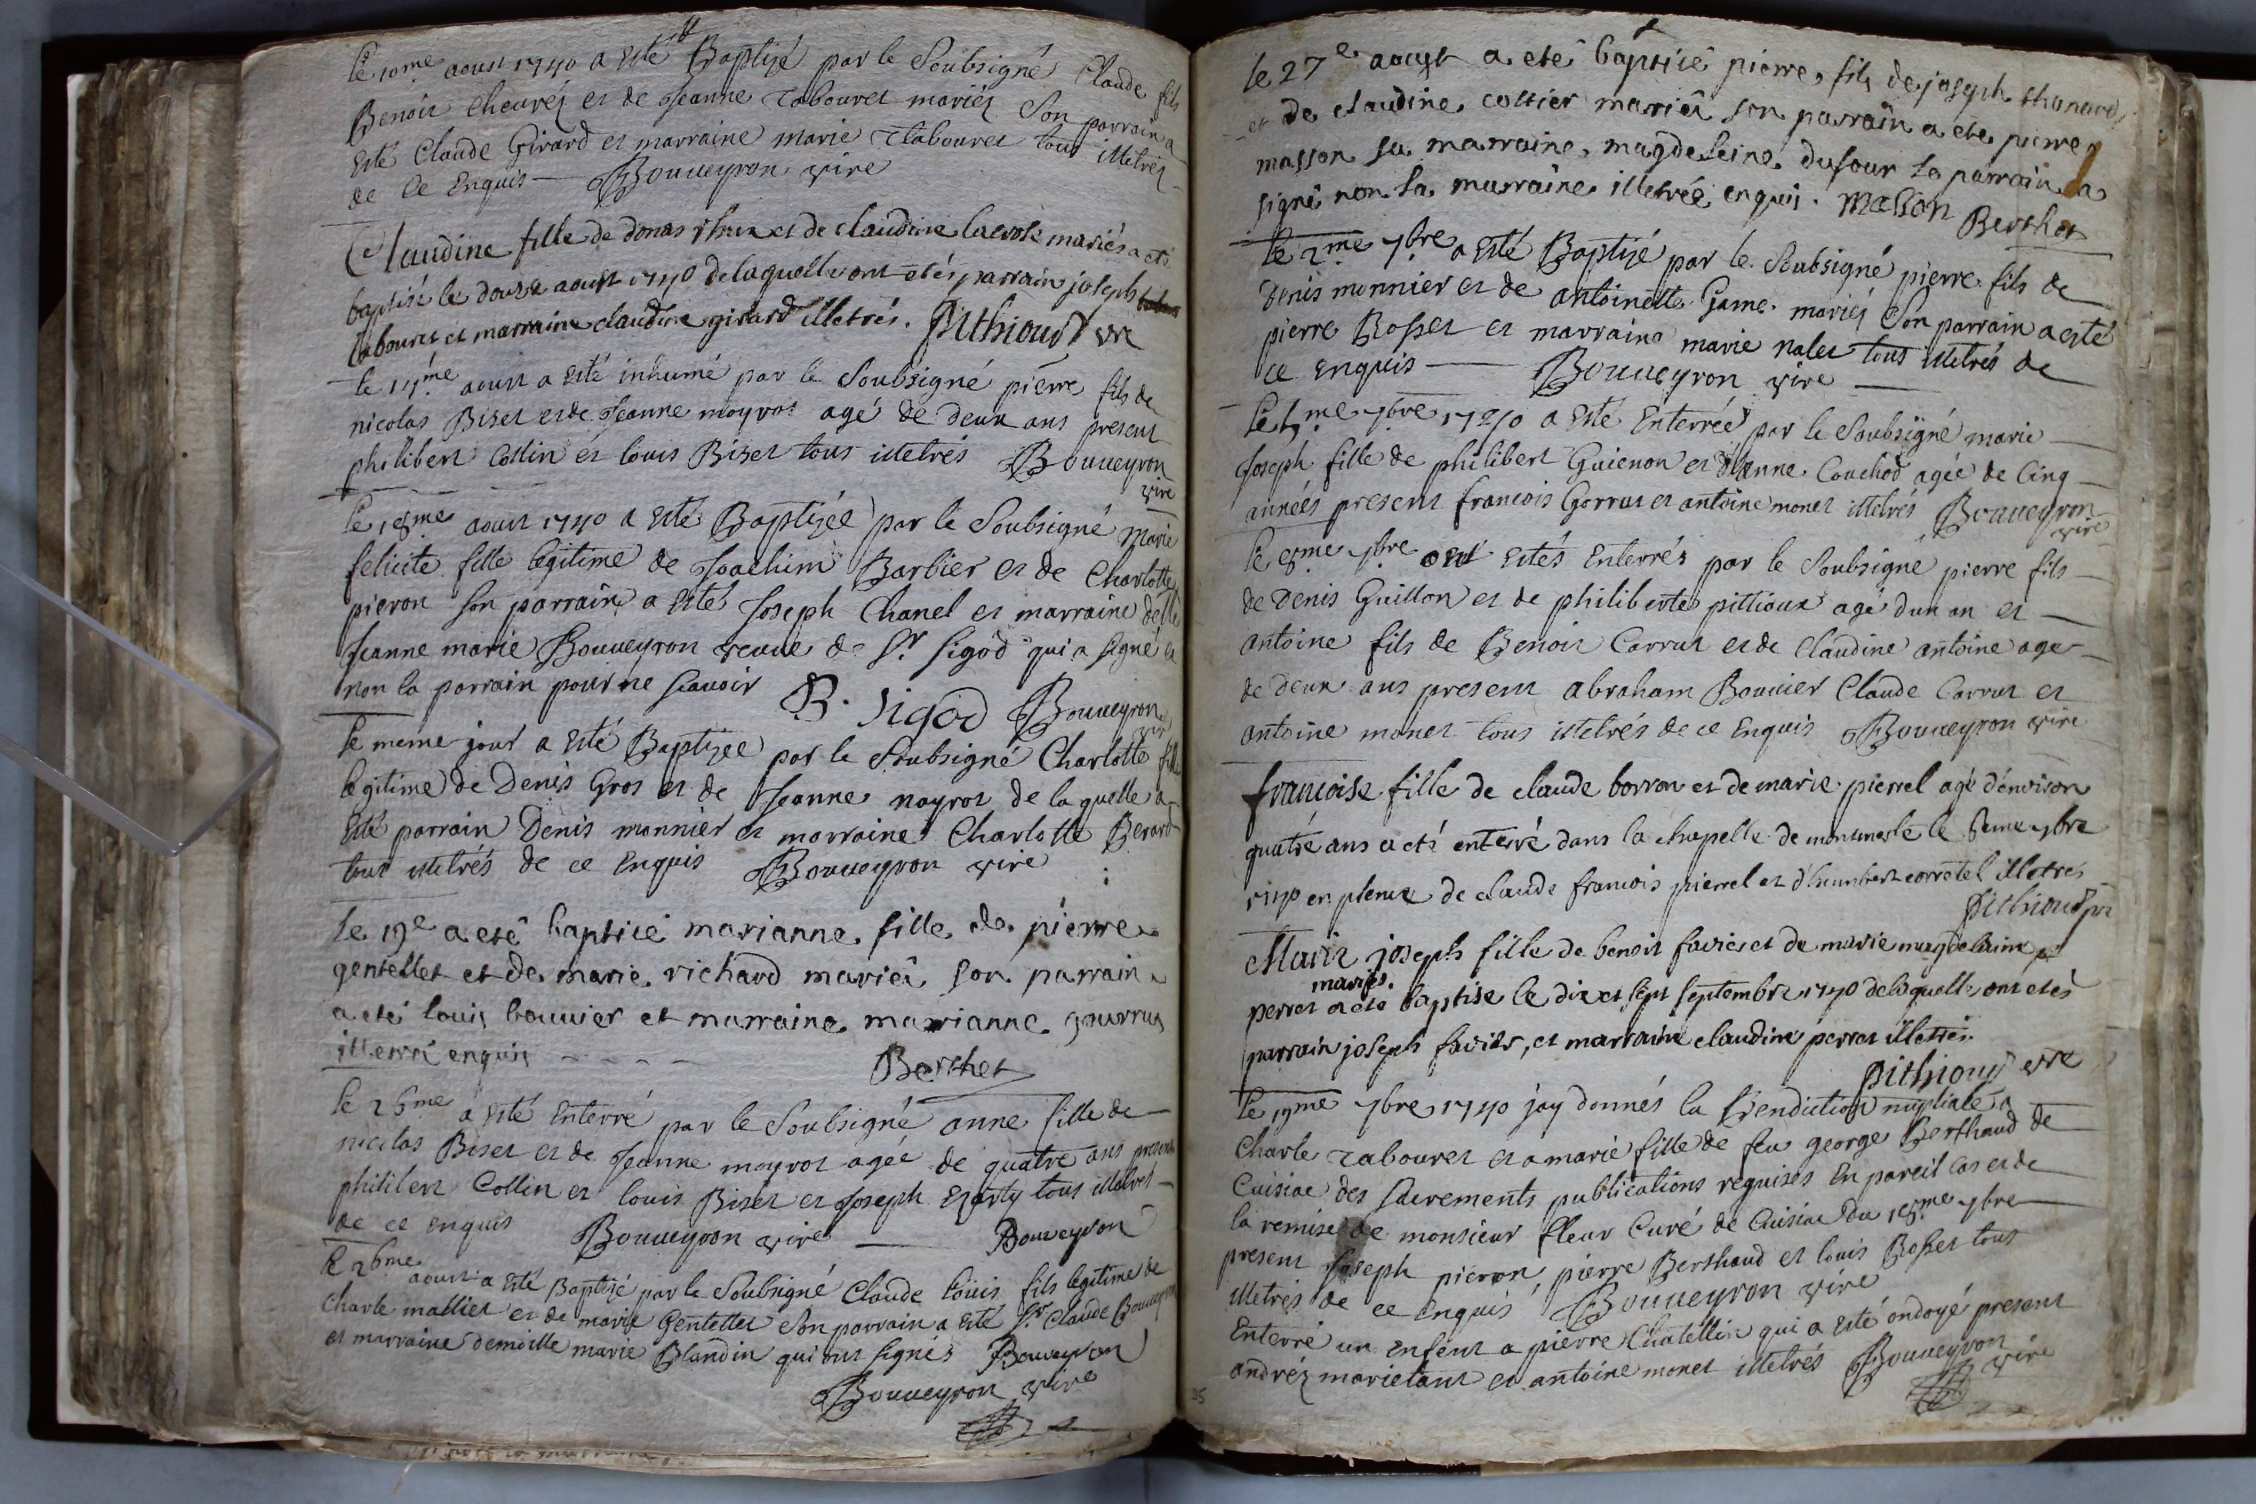 le 10me aoust 1740 a esté Baptizé par le Soubsigné Claude fils
Benoit Chevréz et de Jeanne Tabouret mariéz Son parrain a
esté Claude Girard et marraine marie Tabouret tous illetréz
de ce Enquis — Bouveyron vire
Claudine fille de donas et de claudine mariés a eté
baptisé le douze aoust 1740 de laquelle ont etés parrain joseph
tabouret et marraine claudine girard illetrés. Pithioud vre
le aoust a esté inhumé par le Soubsigné pierre fils de
nicolas Bizet et de Jeanne moyrot agé de deux ans present
philibert Collin et louis Bizet tous illetrés Bouveyron
vire
le 18me aoust 1740 a esté Baptizée par le Soubsigné marie
felicité fille legitime de Joachim Barbier et de Charlotte
pieron son parrain a esté Joseph Chanel et marraine delle
Jeanne marie Bouveyron veuve de Sr Sigod qui a signé et
non la parrain pour ne scavoir B. Sigod Bouveyron
vire
le meme jour a esté Baptizée par le Soubsigné Charlotte fille
legitime de Denis Gros et de Jeanne nayrot de la quelle a
esté parrain Denis monnier et marraine Charlotte Berard
tous illetrés de ce Enquis Bouveyron vire
le 19e a eté baptisé marianne fille de pierre
gentellet et de marie richard mariéz son parrain
a eté louis bouvier et marraine marianne gourrus
illetré enquis - - - - Berthet
le 26me a esté Enterré par le Soubsigné anne fille de
nicolas Bizet et de Jeanne moyrot agée de quatre ans present
philibert Collin et louis Bizet et Joseph tous illetrés
de ce enquis Bouveyron vire — Bouveyron
le 26me aoust a esté Baptizé par le Soubsigné Claude louis fils legitime de
charle malliet et de marie Gentellet Son parrain a esté Sr. Claude Bouveyron
et marraine demoille marie Blandin qui ont signés Bouveyron
Bouveyron vire
le 27e aoust a eté baptisé pierre, fils de joseph thanard
et de claudine cottier mariéz son parrain a eté pierre
masson sa marraine, magdeleine dufour le parrain a
signé non la marraine illetrée enquis. masson Berthet
le 2me 7bre a esté Baptizé par le Soubsigné pierre fils de
Denis monnier et de antoinette Game mariéz Son parrain a esté
pierre Bosset et marraine marie nalet tous illetrés de
ce enquis — Bouveyron vire —
le 7bre 1740 a esté Enterrée par le Soubsigné marie
Joseph fille de philibert Guienon et d'anne Couchod agée de cinq
années present francois Gorrat et antoine monet illetrés Bouveyron
vire
le 8me 7bre ont estés enterrés par le Soubsigné pierre fils
de Denis Guillon et de philiberte pittioux agé d'un an et
antoine fils de Benoit Carrut et de claudine antoine agé
de deux ans present abraham Bouvier Claude Carrut et
antoine monet tous illetrés de ce enquis Bouveyron vire
francoise fille de claude borron et de marie pierrel agé d'environ
quatre ans a eté enterré dans la chapelle de monumerle le 7bre
1740 en presence de claude francois pierrel et d'humbert corretel illetrés
pithioud vre
Marie joseph fille de benoit favier et de marie magdelaine
mariés.
perret a eté baptise le dix et sept septembre 1740 de la quelle ont etés
parrain joseph favier, et marraine claudine perret illetrés.
pithioud vre
le 19me 7bre 1740 jay donnés la Bendiction nuptiale a
Charle Tabouret et a marie fille de feu george Berthaud de
Cuisiae des sacrements publications requises En pareil cas et de
la remise de monsieur fleur Curé de Cuisiae du 18me 7bre
present Joseph pieron, pierre Berthaud et louis Bosset tous
illetrés de ce enquis Bouveyron vire
Enterré un enfent a pierre Chatellin qui a esté ondoyé present
andréz marietant et antoine monet illetrés Bouveyron
vire
35